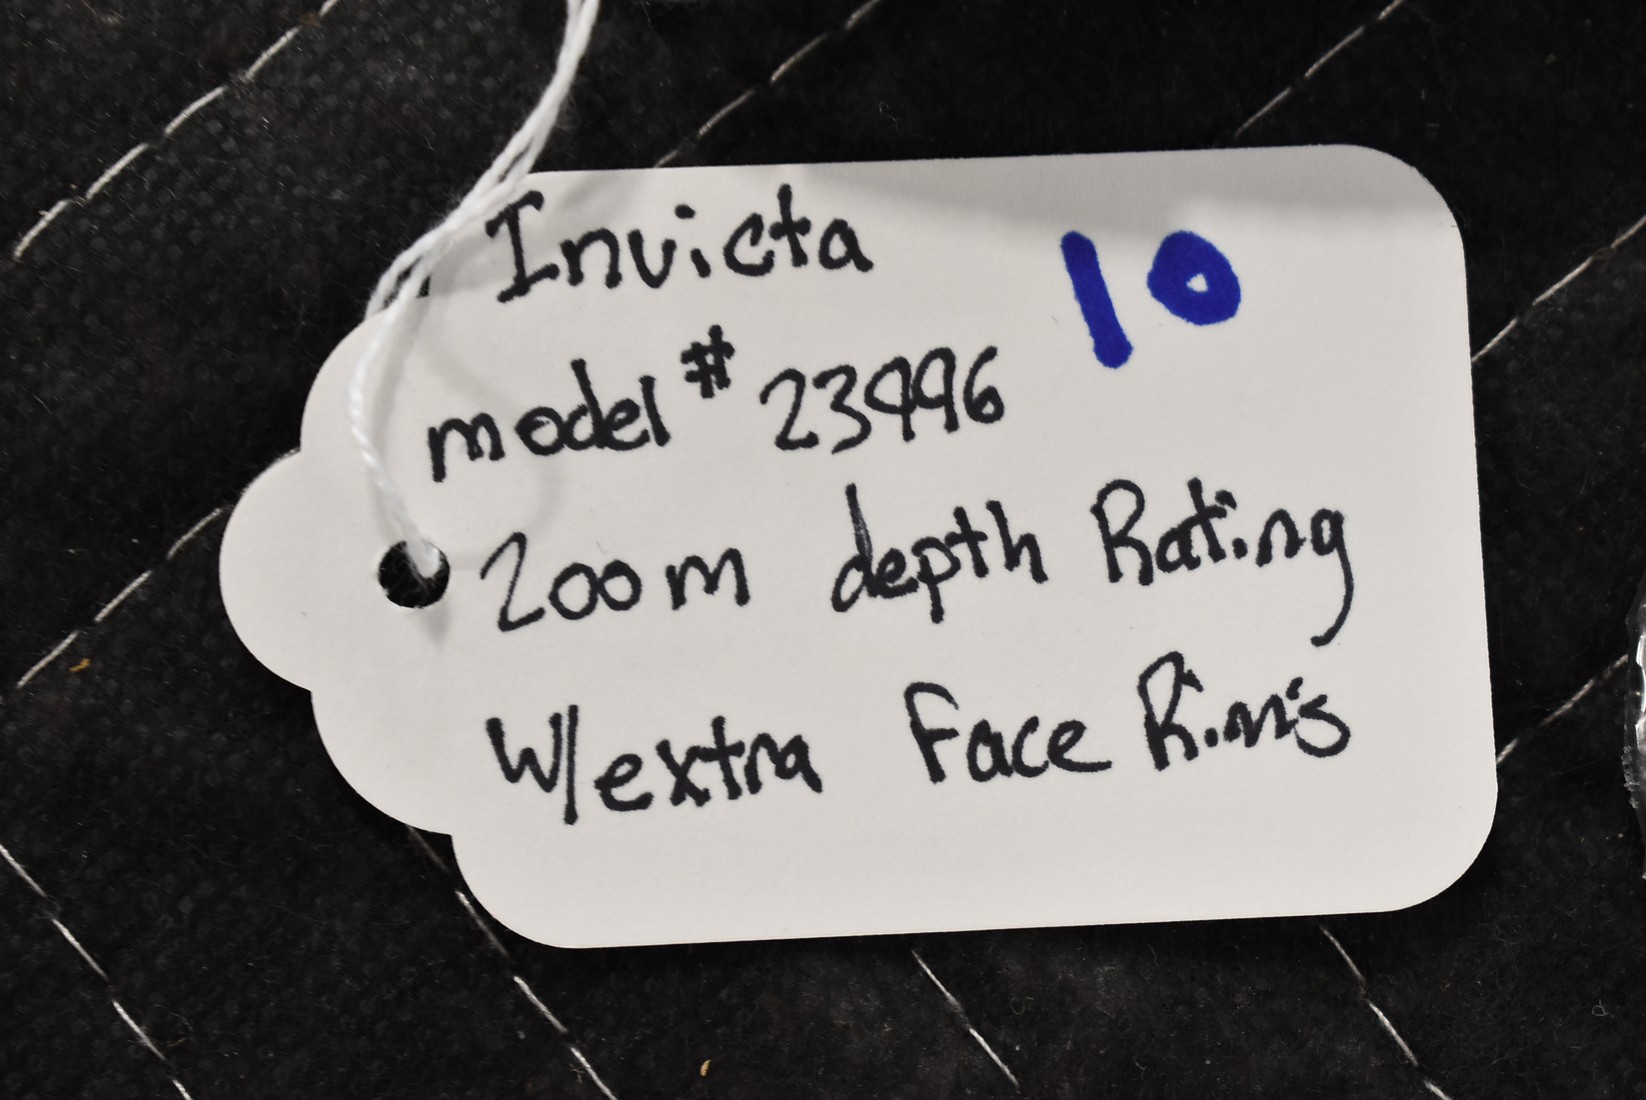 Invicta 10
model # 23996
200m depth Rating
W/extra Face Rim's